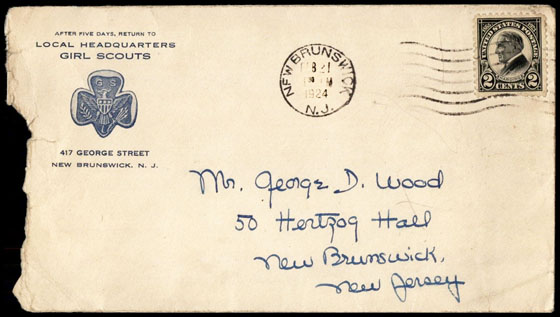 AFTER FIVE DAYS, RETURN TO
LOCAL HEADQUARTERS
GIRL SCOUTS
GS
417 GEORGE STREET
NEW BRUNSWICK, N. J.
NEW BRUNSWICK
FEB 21
1924
N.J.
UNITED STATES POSTAGE
2 CENTS 2
Mr. George D. Wood
50 Hertzog Hall
New Brunswick,
New Jersey